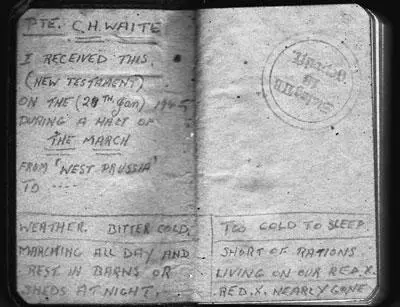 PTE. C.H. WAITE
I RECEIVED THIS.
(NEW TESTAMENT)
ON THE (28TH Jan) 1945
DURING A HALT OF
THE MARCH
FROM 'WEST PRUSSIA'
TO ....
WEATHER. BITTER COLD,
MARCHING ALL DAY AND
REST IN BARNS OR
SHEDS AT NIGHT.
TOO COLD TO SLEEP
SHORT OF RATIONS
LIVING ON OUR RED.X.
RED.X. NEARLY GONE